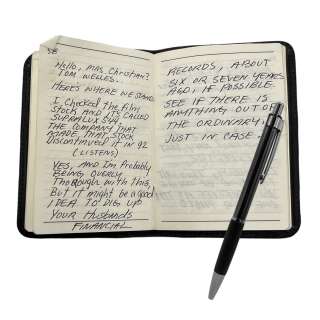 58
Hello, Mrs. Christian?
Tom Welles.
Here's where we stand.
I checked the film
stock and it's called
Supralux 544
The company that
made that stock
discontinued it in 92
(Listens)
Yes, and I'm probably
being overly
thorough with this,
but it might be a good
idea to dig up
your husbands
financial
records, about
six or seven years
ago, if possible.
See if there is
anything out of
the ordinary.
Just in case.